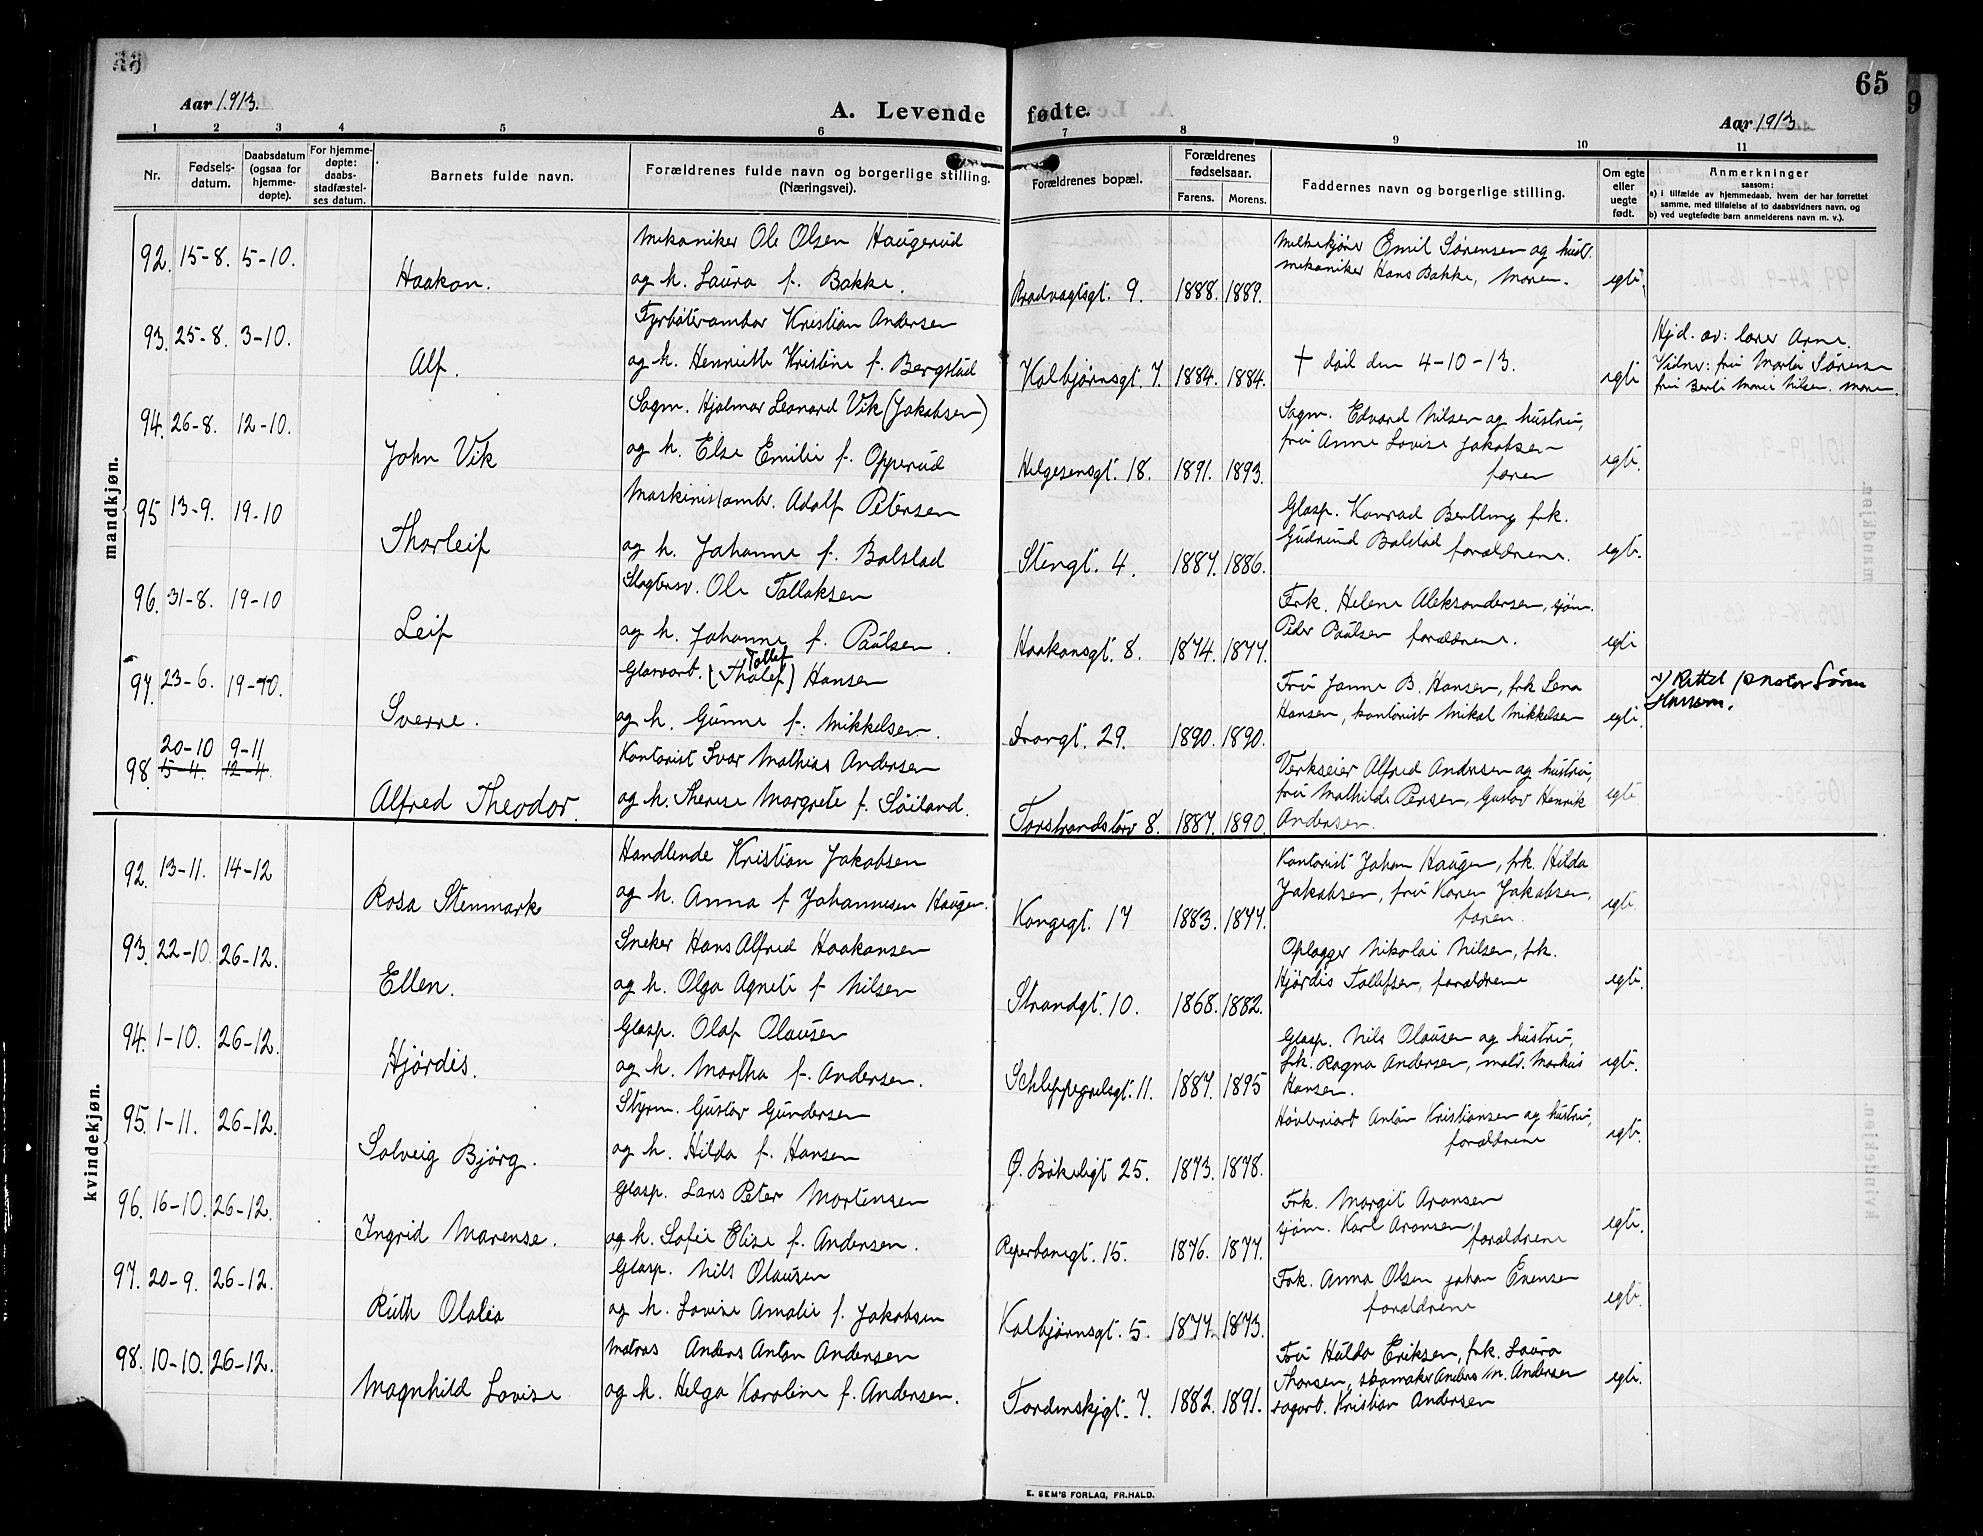 65
Aar 1913.
A. Levende fødte.
Aar 1913
1 2 3 4 5 6 7 8 9 10 11
Nr.
Fødsels-
datum.
Daabsdatum
(ogsaa for
hjemme-
døpte).
For hjemme-
døpte:
daabs-
stadfæstel-
ses datum.
Barnets fulde navn.
Forældrenes fulde navn og borgerlige stilling.
(Næringsvei).
Forældrenes bopæl.
Forældrenes
fødselsaar.
Farens. Morens.
Faddernes navn og borgerlige stilling.
Om egte
eller
uegte
født.
Anmerkninger
saasom:
a) i tilfælde av hjemmedaab, hvem der har forrettet
samme, med tilføielse af to daabsvidners navn, og
b) ved uegtefødte barn anmelderens navn m. v.).
mandkjøn.
92. 15-8. 5-10. Haakon.
Mekaniker Ole Olsen Haugerud
og h. Laura f. Bakke.
Bradvagtsgt. 9. 1888. 1889.
Emil Sørensen og hust.
mekaniker Hans Bakke, moren.
egte.
93. 25-8. 3-10. Alf.
Fyrbøterambar Kristian Andersen
og h. Henriette Kristine f. Bergstad
Kolbjørnsgt. 7. 1884. 1884.
† død den 4-10-13.
egte
Hjd. av: lærer Arne.
Vidner: fru Marta Sørensen
fru Berte Marie Nilsen. moren.
94. 26-8. 12-10. John Vik
Sagm. Hjalmar Leonard Vik (Jakobsen)
og h. Else Emilie f. Opperud
Helgesensgt. 18. 1891. 1893.
Sagm. Edvard Nilsen og hustru,
fru Anne Lovise Jakobsen
faren
egte.
95 13-9. 19-10 Thorleif
Maskinistamb. Adolf Petersen
og h. Johanne f. Bolstad
Stengt. 4. 1887. 1886.
Glasp. Konrad Berlling frk.
Gudrund Bolstad forældrene.
egte.
96. 31-8. 19-10 Leif
Slagtersv. Ole Tollaksen
og h. Johanne f. Paulsen.
Haakonsgt. 8. 1874. 1877.
Frk. Helene Aleksandersen, sjøm.
Peder Paulsen forældrene.
egte
97. 23-6. 19-10. Sverre.
Tollef
Glasvarb. [Tholef] Hansen
og h. Gunne f. Mikkelsen.
Drongt. 29. 1890. 1890.
Fru Janna B. Hansen, frk Lena
Hansen, kontorist Mikal Mikkelsen
egte.
Rettet pastor Søren
Hansen.
20-10 9-11
98. 15-4. 12-4. Alfred Theodor.
Kontorist Ivar Mathias Andersen
og h. Therese Margrete f. Søiland.
Torstrandstorv 8. 1887. 1890.
Verkseier Alfred Andersen og hustru,
fru Mathilde Persen, Gustav Henrik
Andersen.
egte
kvindekjøn.
92. 13-11. 14-12 Rosa Stenmark
Handlende Kristian Jakobsen
og h. Anna f Johannesen Haugen.
Kongegt. 17 1883. 1877.
Kontorist Johan Haugen, frk. Hilda
Jakobsen, fru Karen Jakobsen,
faren.
egte.
93. 22-10. 26-12. Ellen.
Sneker Hans Alfred Haakonsen
og h. Olga Agnete f Nilsen
Strandgt. 10. 1868. 1882.
Oplagger Nikolai Nilsen, frk.
Hjørdis Tollefsen, forældrene
egte.
94. 1-10. 26-12. Hjørdis.
Glasp. Olaf Olausen
og h. Martha f. Andersen.
Schleppegrelsgt. 11. 1887. 1895
Glasp. Nils Olausen og hustru,
frk. Ragna Andersen, matr. Markus
Hansen.
egte.
95. 1-11. 26-12. Solveig Bjørg.
Styrm. Gustav Gundersen
og h. Hilda f. Hansen
Ø. Bøkeligt 25. 1873. 1878.
Høvleriarb Anton Kristiansen og hustru,
forældrene
egte.
96. 16-10. 26-12. Ingrid Marense.
Glasp. Lars Peter Mortensen
og h. Sofie Elise f. Andersen.
Reperbanegt. 15. 1876. 1877.
Frk. Margit Aronsen
sjøm. Karl Aronsen,
forældrene
egte.
97. 20-9. 26-12. Ruth Olalea
Glasp. Nils Olausen
og h. Lovise Amalie f. Jakobsen
Kolbjørnsgt. 5. 1877. 1873.
Frk. Anna Olsen Johan Evensen
forældrene
egte.
98. 10-10. 26-12. Magnhild Lovise
Matros Anders Anton Andersen
og h. Helga Karoline f. Andersen.
Tordenskjgt. 7. 1882. 1891.
Fru Hulda Eriksen, frk. Laura
Thorsen, skomaker Anders M. Andersen
sagarb. Kristian Andersen
egte.
E. SEM'S FORLAG, FR.HALD.